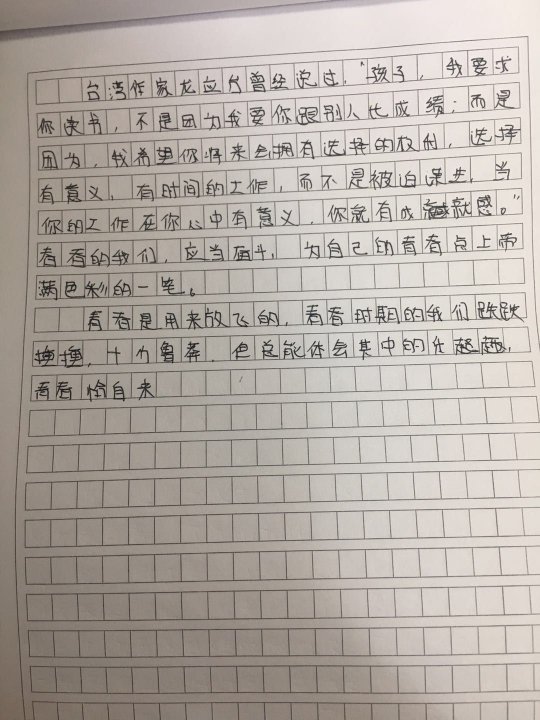 台湾作家龙应台曾经说过，"孩子，我要求
你读书，不是因为我要你跟别人比成绩；而是
因为，我希望你将来会拥有选择的权利，选择
有意义，有时间的工作，而不是被迫谋生，当
你的工作在你心中有意义，你就有成就感。"
青春的我们，应当奋斗，为自己的青春点上
满色彩的一笔。
青春是用来放飞的，青春时期的我们跌跌
撞撞，十分鲁莽，但总能体会其中的
青春恰自来